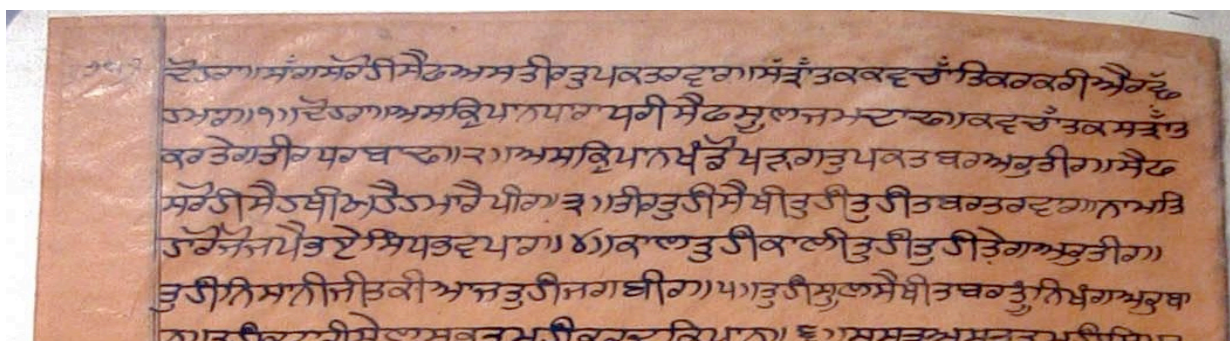 ਦੋਹਰਾ॥ਸਾਂਗਸਰੋਹੀਸੈਫਅਸਤੀਰਤੁਪਕਤਰਵਾਰ॥ਸੱਤ੍ਰਾਂਤਕਕਵਚਾਂਤਿਕਰਕਰੀਐਰੱਛ
ਹਮਾਰ॥੧॥ਦੋਹਰਾ॥ਅਸਕ੍ਰਿਪਾਨਧਾਰਾਧਰੀਸੈਫਸੂਲਜਮਦਾਢ॥ਕਵਚਾਂਤਕਸੱਤ੍ਰਾਂਤ
ਕਰਤੇਗਤੀਰਧਰਬਾਢ॥੨॥ਅਸਕ੍ਰਿਪਾਨਖੰਡੋਖੜਗਤੁਪਕਤਬਰਅਰੁਤੀਰ॥ਸੈਫ
ਸਰੋਹੀਸੈਹਥੀਯਹੈਹਮਾਰੈਪੀਰ॥੩॥ਤੀਰਤੁਹੀਸੈਥੀਤੁਹੀਤੁਹੀਤਬਰਤਰਵਾਰ॥ਨਾਮਤਿ
ਹਾਰੋਜੋਜਪੈਭਏਸਿਧਭਵਪਾਰ॥੪॥ਕਾਲਤੁਹੀਕਾਲੀਤੁਹੀਤੁਹੀਤੇਗਅਰੁਤੀਰ॥
ਤੁਹੀਨਿਸਾਨੀਜੀਤਕੀਆਜਤੁਹੀਜਗਬੀਰ॥੫॥ਤੁਹੀਸੂਲਸੈਥੀਤਬਰਤੂੰਨਿਖੰਗਅਰੁਬਾ